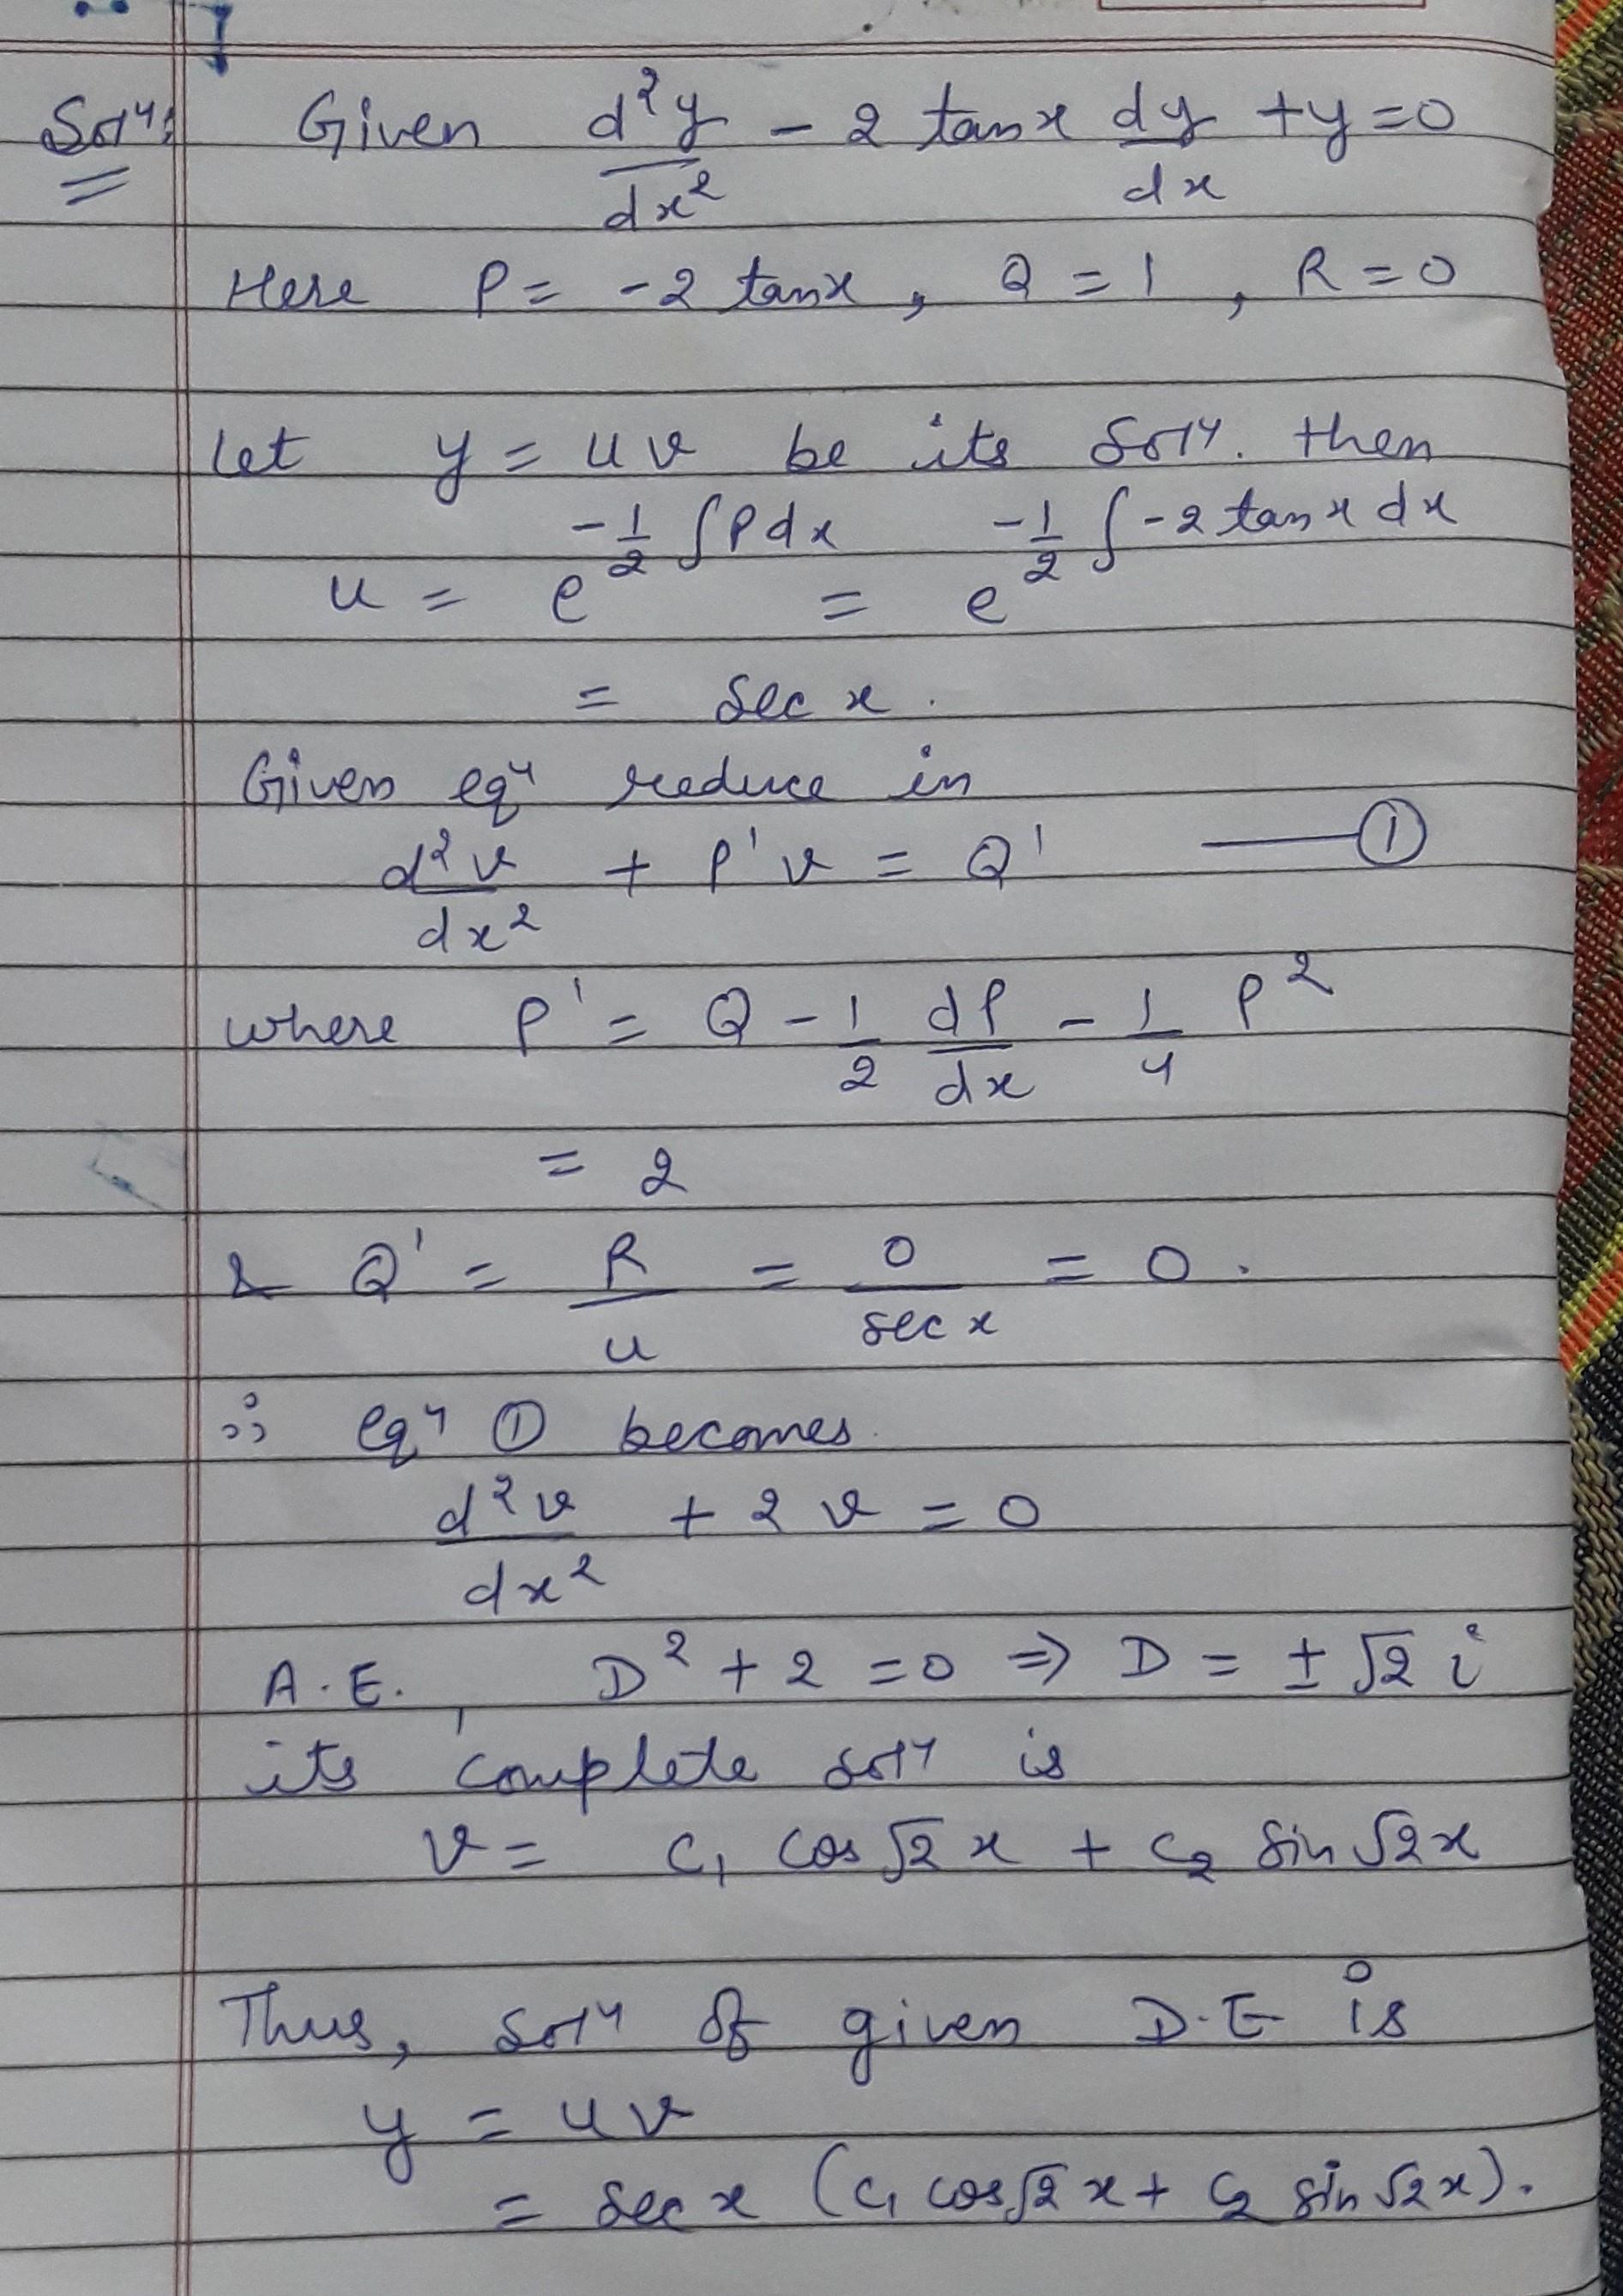 Solⁿ: Given d²y/dx² - 2 tanx dy/dx + y = 0
Here P = -2 tanx, Q = 1, R = 0
Let y = uv be its Solⁿ. then
u = e^(-1/2 ∫Pdx) = e^(-1/2 ∫-2 tanx dx)
= Sec x.
Given eqⁿ reduce in
d²v/dx² + P'v = Q' —— ①
where P' = Q - 1/2 dP/dx - 1/4 P²
= 2
& Q' = R/u = 0/sec x = 0.
∴ eqⁿ ① becomes
d²v/dx² + 2v = 0
A.E., D² + 2 = 0 ⇒ D = ± √2 i
its complete solⁿ is
v = C₁ cos√2 x + C₂ Sin √2x
Thus, solⁿ of given D.E is
y = uv
= sec x (C₁ cos√2 x + C₂ sin √2x).